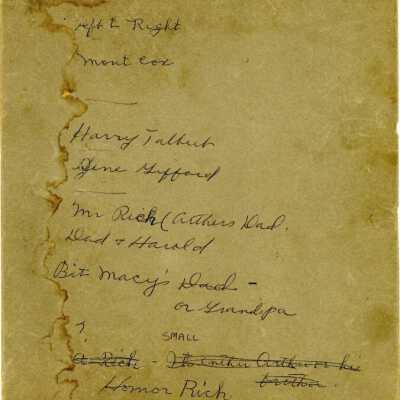 Left to Right
Mont Cox
Harry Talbert
Gene Gifford
Mr Rich (Arthers Dad.
Dad & Harold
Bit Macy's Dad -
or Grandpa
?
SMALL
A. Rich - It's either Arthur or his
brother.
Homor Rich